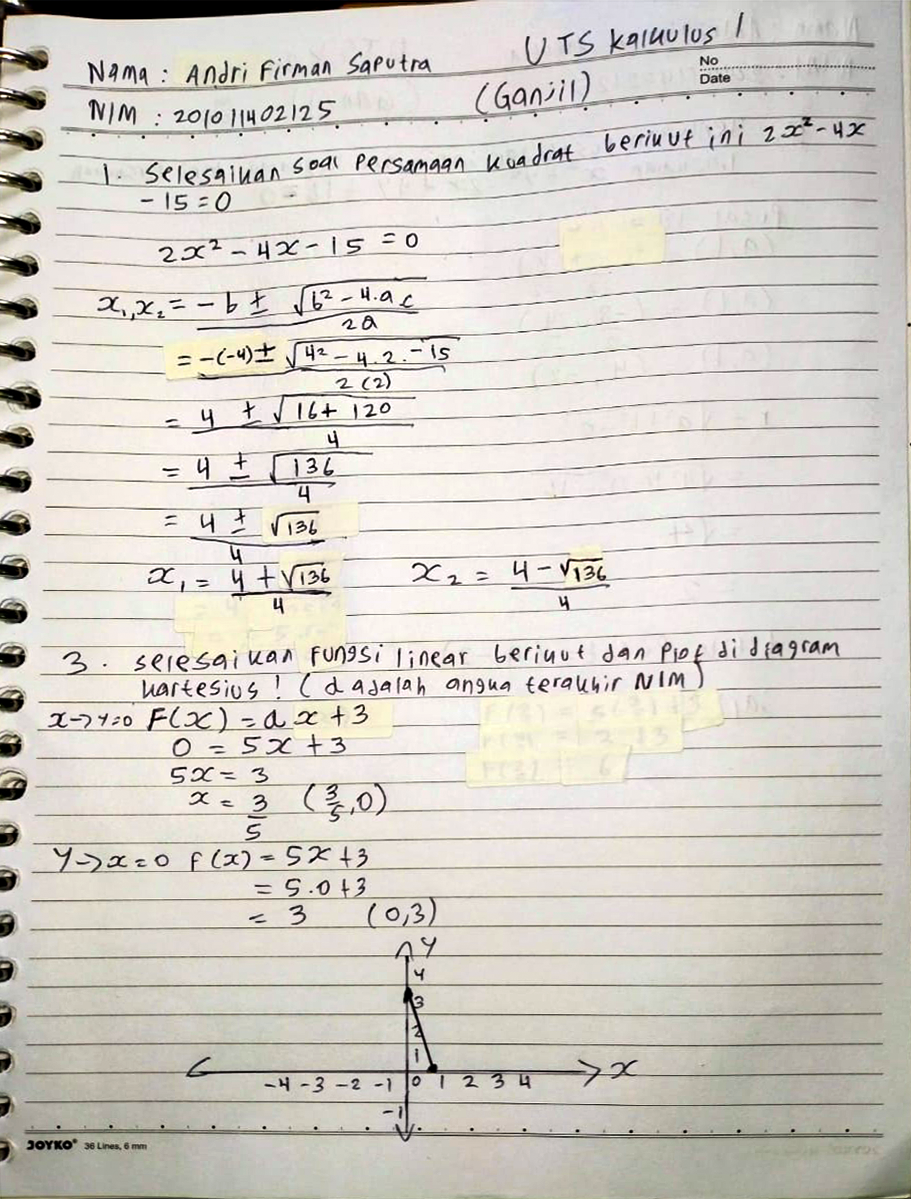 UTS Kalkulus 1
Nama : Andri Firman Saputra
No
Date
(Ganjil)
NIM : 201011402125
1. Selesaikan soal Persamaan kuadrat berikut ini 2x² - 4x
- 15 = 0
2x² - 4x - 15 = 0
x₁,x₂ = -b ± √b² - 4.a c
2a
= -(-4) ± √4² - 4.2.-15
2(2)
= 4 ± √16 + 120
4
= 4 ± √136
4
= 4 ± √136
4
x₁ = 4 + √136 x₂ = 4 - √136
4 4
3. Selesaikan fungsi linear berikut dan Plot di diagram
kartesius ! (a adalah angka terakhir NIM)
x → y=0 F(x) = a x + 3
0 = 5x + 3
5x = 3
x = 3 (3/5, 0)
5
Y → x = 0 f(x) = 5x + 3
= 5.0 + 3
= 3 (0,3)
Y
4
3
2
1
-4 -3 -2 -1 0 1 2 3 4 x
-1
JOYKO 36 Lines, 6 mm